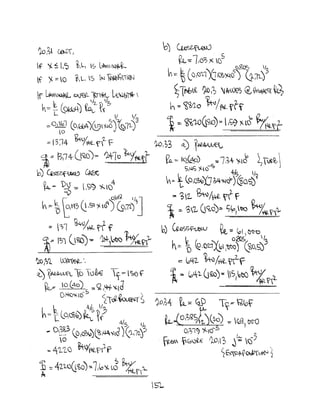 20.31 CONT.
IF X ≤ 1.5 B.L. IS LAMINAR
IF X = 10 B.L. IS IN TRANSITION
IF LAMINAR OVER TOTAL LENGTH:
h = k/L (0.664) Re^1/2 Pr^1/3
= 13.74 BTU/HR FT² F
q/A = 13.74 (180) = 2470 BTU/HR FT²
b) CROSSFLOW CASE
Re = Dv/ν = 1.59 × 10⁴
= 137 BTU/HR FT² F
q/A = 137 (180) = 24,600 BTU/HR FT²
20.32 WATER:
a) PARALLEL TO TUBE Tf = 150 F
Re = 10(40)/ = 8.44 × 10⁷
{TURBULENT}
h = k/L (0.036) Re^4/5 Pr^1/3
= 0.383/10 (0.036)(8.44×10⁷)^4/5 (2.72)^1/3
= 4220 BTU/HR FT² F
q/A = 4220(180) = 7.6 × 10⁵ BTU/HR FT²
b) CROSSFLOW
Re = 7.03 × 10⁵
h = k/D (0.027)(7.03×10⁵)^0.805 (2.72)^1/3
{TABLE 20.3 VALUES @ HIGHEST Re}
h = 8820 BTU/HR FT² F
q/A = 8820(180) = 1.59 × 10⁶ BTU/HR FT²
20.33 a) PARALLEL
Re = 10(40)/5.45×10⁻⁵ = 7.34 × 10⁶ {TURB}
h = k/L (0.036)(7.34×10⁶)^4/5 (80.5)^1/3
= 312 BTU/HR FT² F
q/A = 312 (180) = 56,100 BTU/HR FT²
b) CROSSFLOW Re = 61,000
h = k/D (0.027)(61,000)^0.805 (80.5)^1/3
= 642 BTU/HR FT² F
q/A = 642 (180) = 115,600 BTU/HR FT²
20.34 Re = GD/μ Tf = 186F
= 161,000
FROM FIGURE 20.13 j ≅ 10⁻³
{EXTRAPOLATION}
152